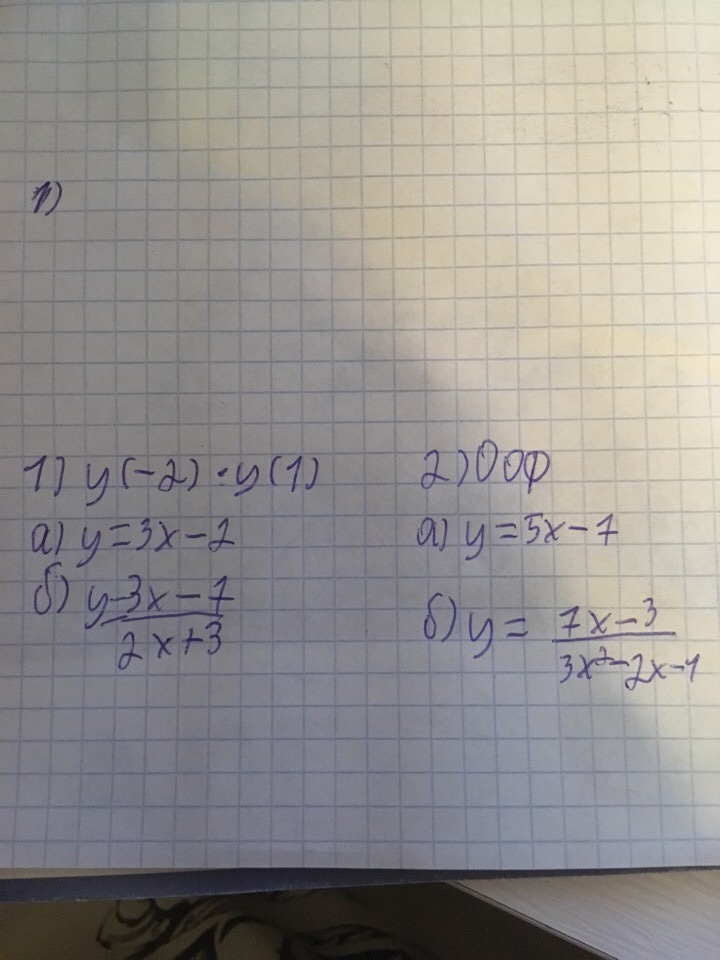 1)
1) y(-2) · y(1)
а) y=3x-2
б) y 3x-7
2x+3
2) ООФ
а) y=5x-7
б) y= 7x-3
3x²-2x-1